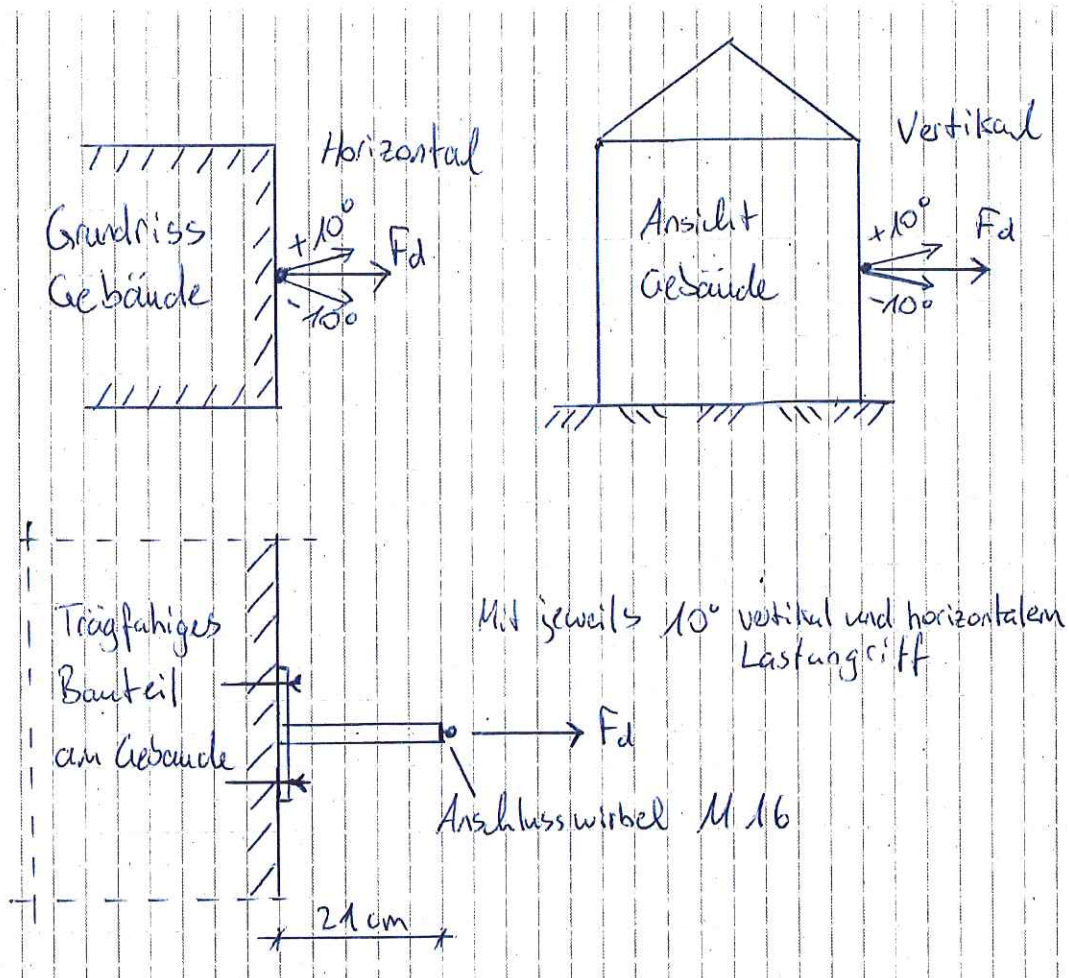 Horizontal
Grundriss
Gebäude
+10°
Fd
-10°
Vertikal
Ansicht
Gebäude
+10°
Fd
-10°
Trägfahiges
Bauteil
am Gebäude
Mit jeweils 10° vertikal und horizontalem
Lastangriff
Fd
Anschlusswirbel M 16
21 cm